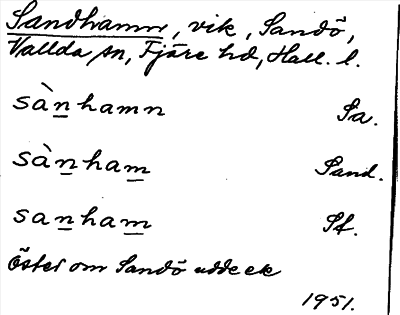 Sandhamn, vik, Sandö,
Vallda sn, Fjäre hd, Hall. l.
sànhamn Sa.
sànham Sand.
sanham Sf.
Öster om Sandö udde ek
1951.